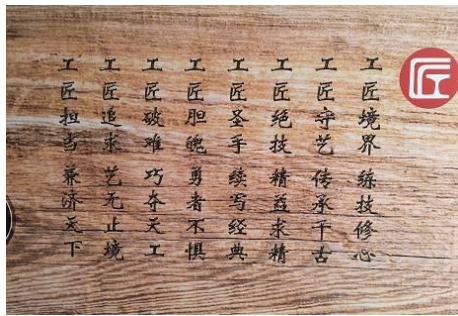 匠
工匠境界 练技修心
工匠守艺 传承千古
工匠绝技 精益求精
工匠圣手 续写经典
工匠胆魄 勇者不惧
工匠破难 巧夺天工
工匠追求 艺无止境
工匠担当 兼济天下